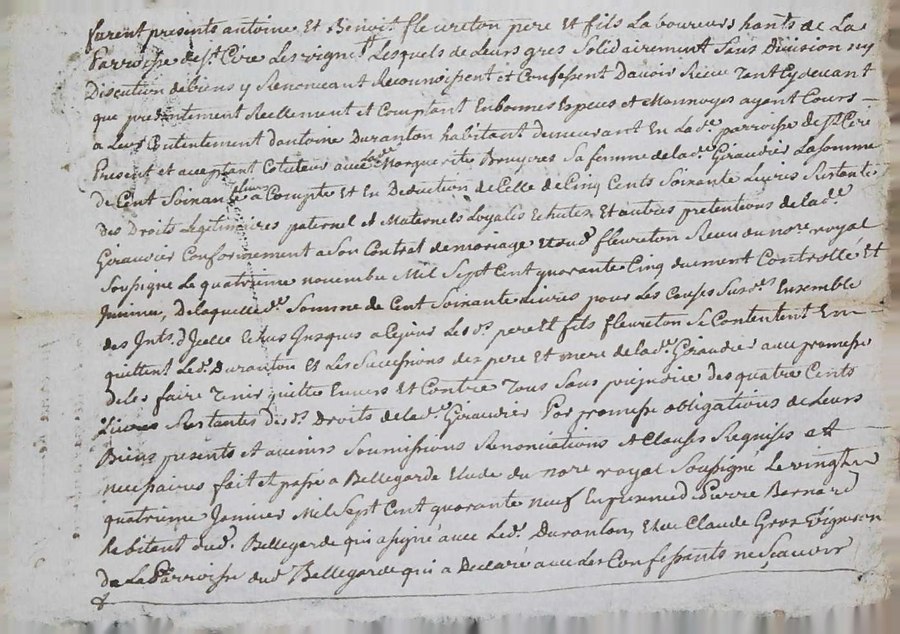 furent presents antoine Et Benoit fleureton pere Et fils Laboureurs hants de La
Parroisse de st. Cire Les vignes Lesquels de Leurs gres Solidairement Sans Division ny
Discution de biens y Renonceant Reconnoissent et Confessent Davoir Receu Tant Cy devant
que presentement Reellement et Comptant En bonnes Especes et Monnoyes ayant Cours
a Leur Contentement dantoine Duranton habitant demeurant En Lad. parroisse de st. Cire
Present et aceptant Cotuteur avec Marguerite Bruyeres Sa femme de lad. Giraudier La somme
de Cent Soixante Livres a Compte Et En Deduction de Celle de Cinq Cents Soixante Livres Restante
des Droits Legitimaires paternel et Maternels Loyales Echutes Et autres pretentions de lad.
Giraudier Conformement a Son Contrat de mariage Et sud. fleureton Receu du nore royal
Soussigne Le quatrieme novembre Mil Sept Cent quarante Cinq duement Controllé Et
De laquelle de. Somme de Cent Soixante Livres pour Les Causes Susd. Ensemble
des Ints. d'Jcelle Echus Jusques a Cejour Lesd. pere Et fils fleureton Se Contentent En
quittent Led. Duranton Et Les Successions des pere Et mere de lad. Giraudier avec promesse
de les faire Tenir quitte Envers Et Contre Tous Sans prejudice des quatre Cents
Livres Restantes desd. Droits de lad. Giraudier Par promesse obligations de Leurs
Biens presents Et avenir Soumissions Renonciations et Clauses Requises et
necessaires fait et passé a Bellegarde Etude du nore royal Soussigne Le vingt
quatrieme Janvier Mil Sept Cent quarante neuf En presence d Pierre Bernard
habitant dud. Bellegarde qui a signé avec Led. Duranton, Et de Claude Gros Vigneron
de La Parroisse dud Bellegarde qui a Declaré avec Les Confessants ne Scavoir